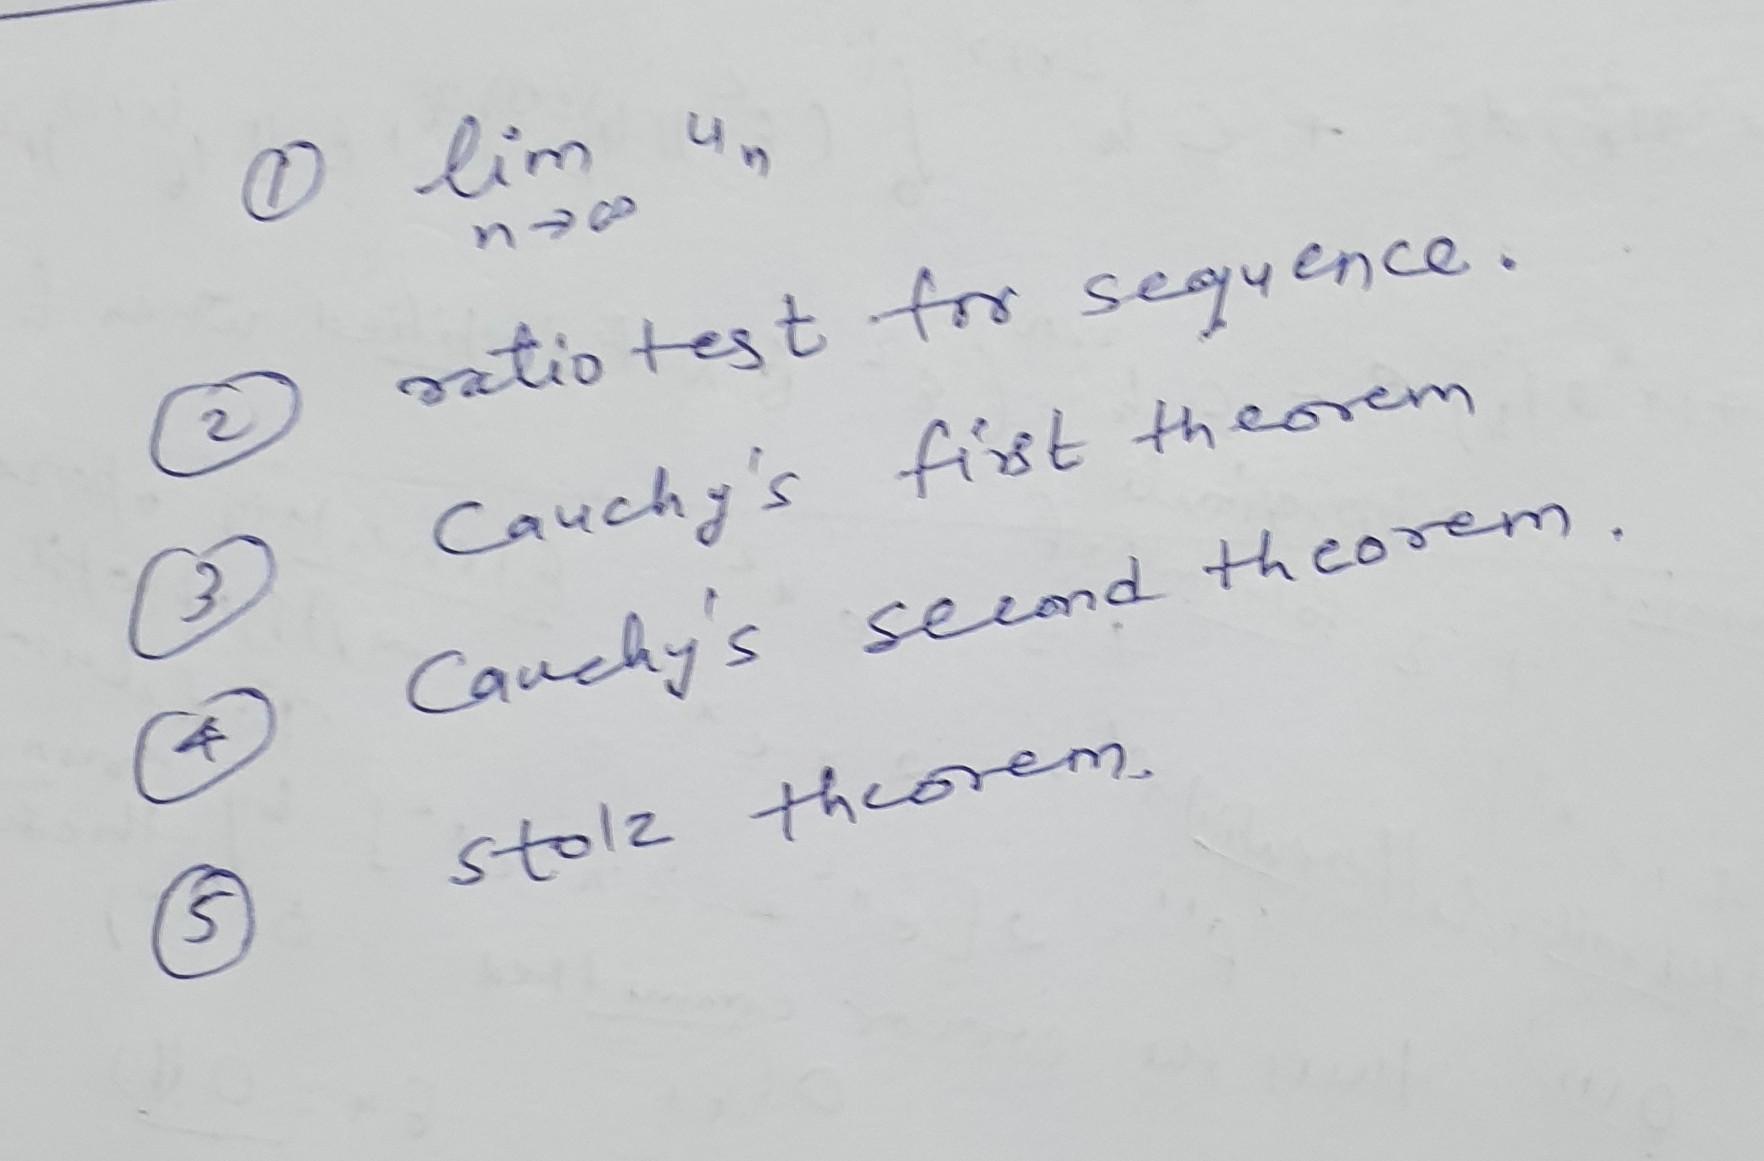 ① lim uₙ
n→∞
② ratio test for sequence.
③ Cauchy's first theorem
④ Cauchy's second theorem.
⑤ stolz theorem.